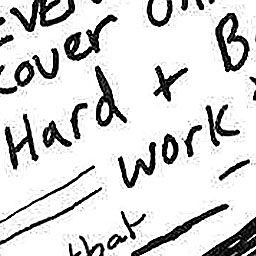 EVEN
cover on
Hard + B
work
that